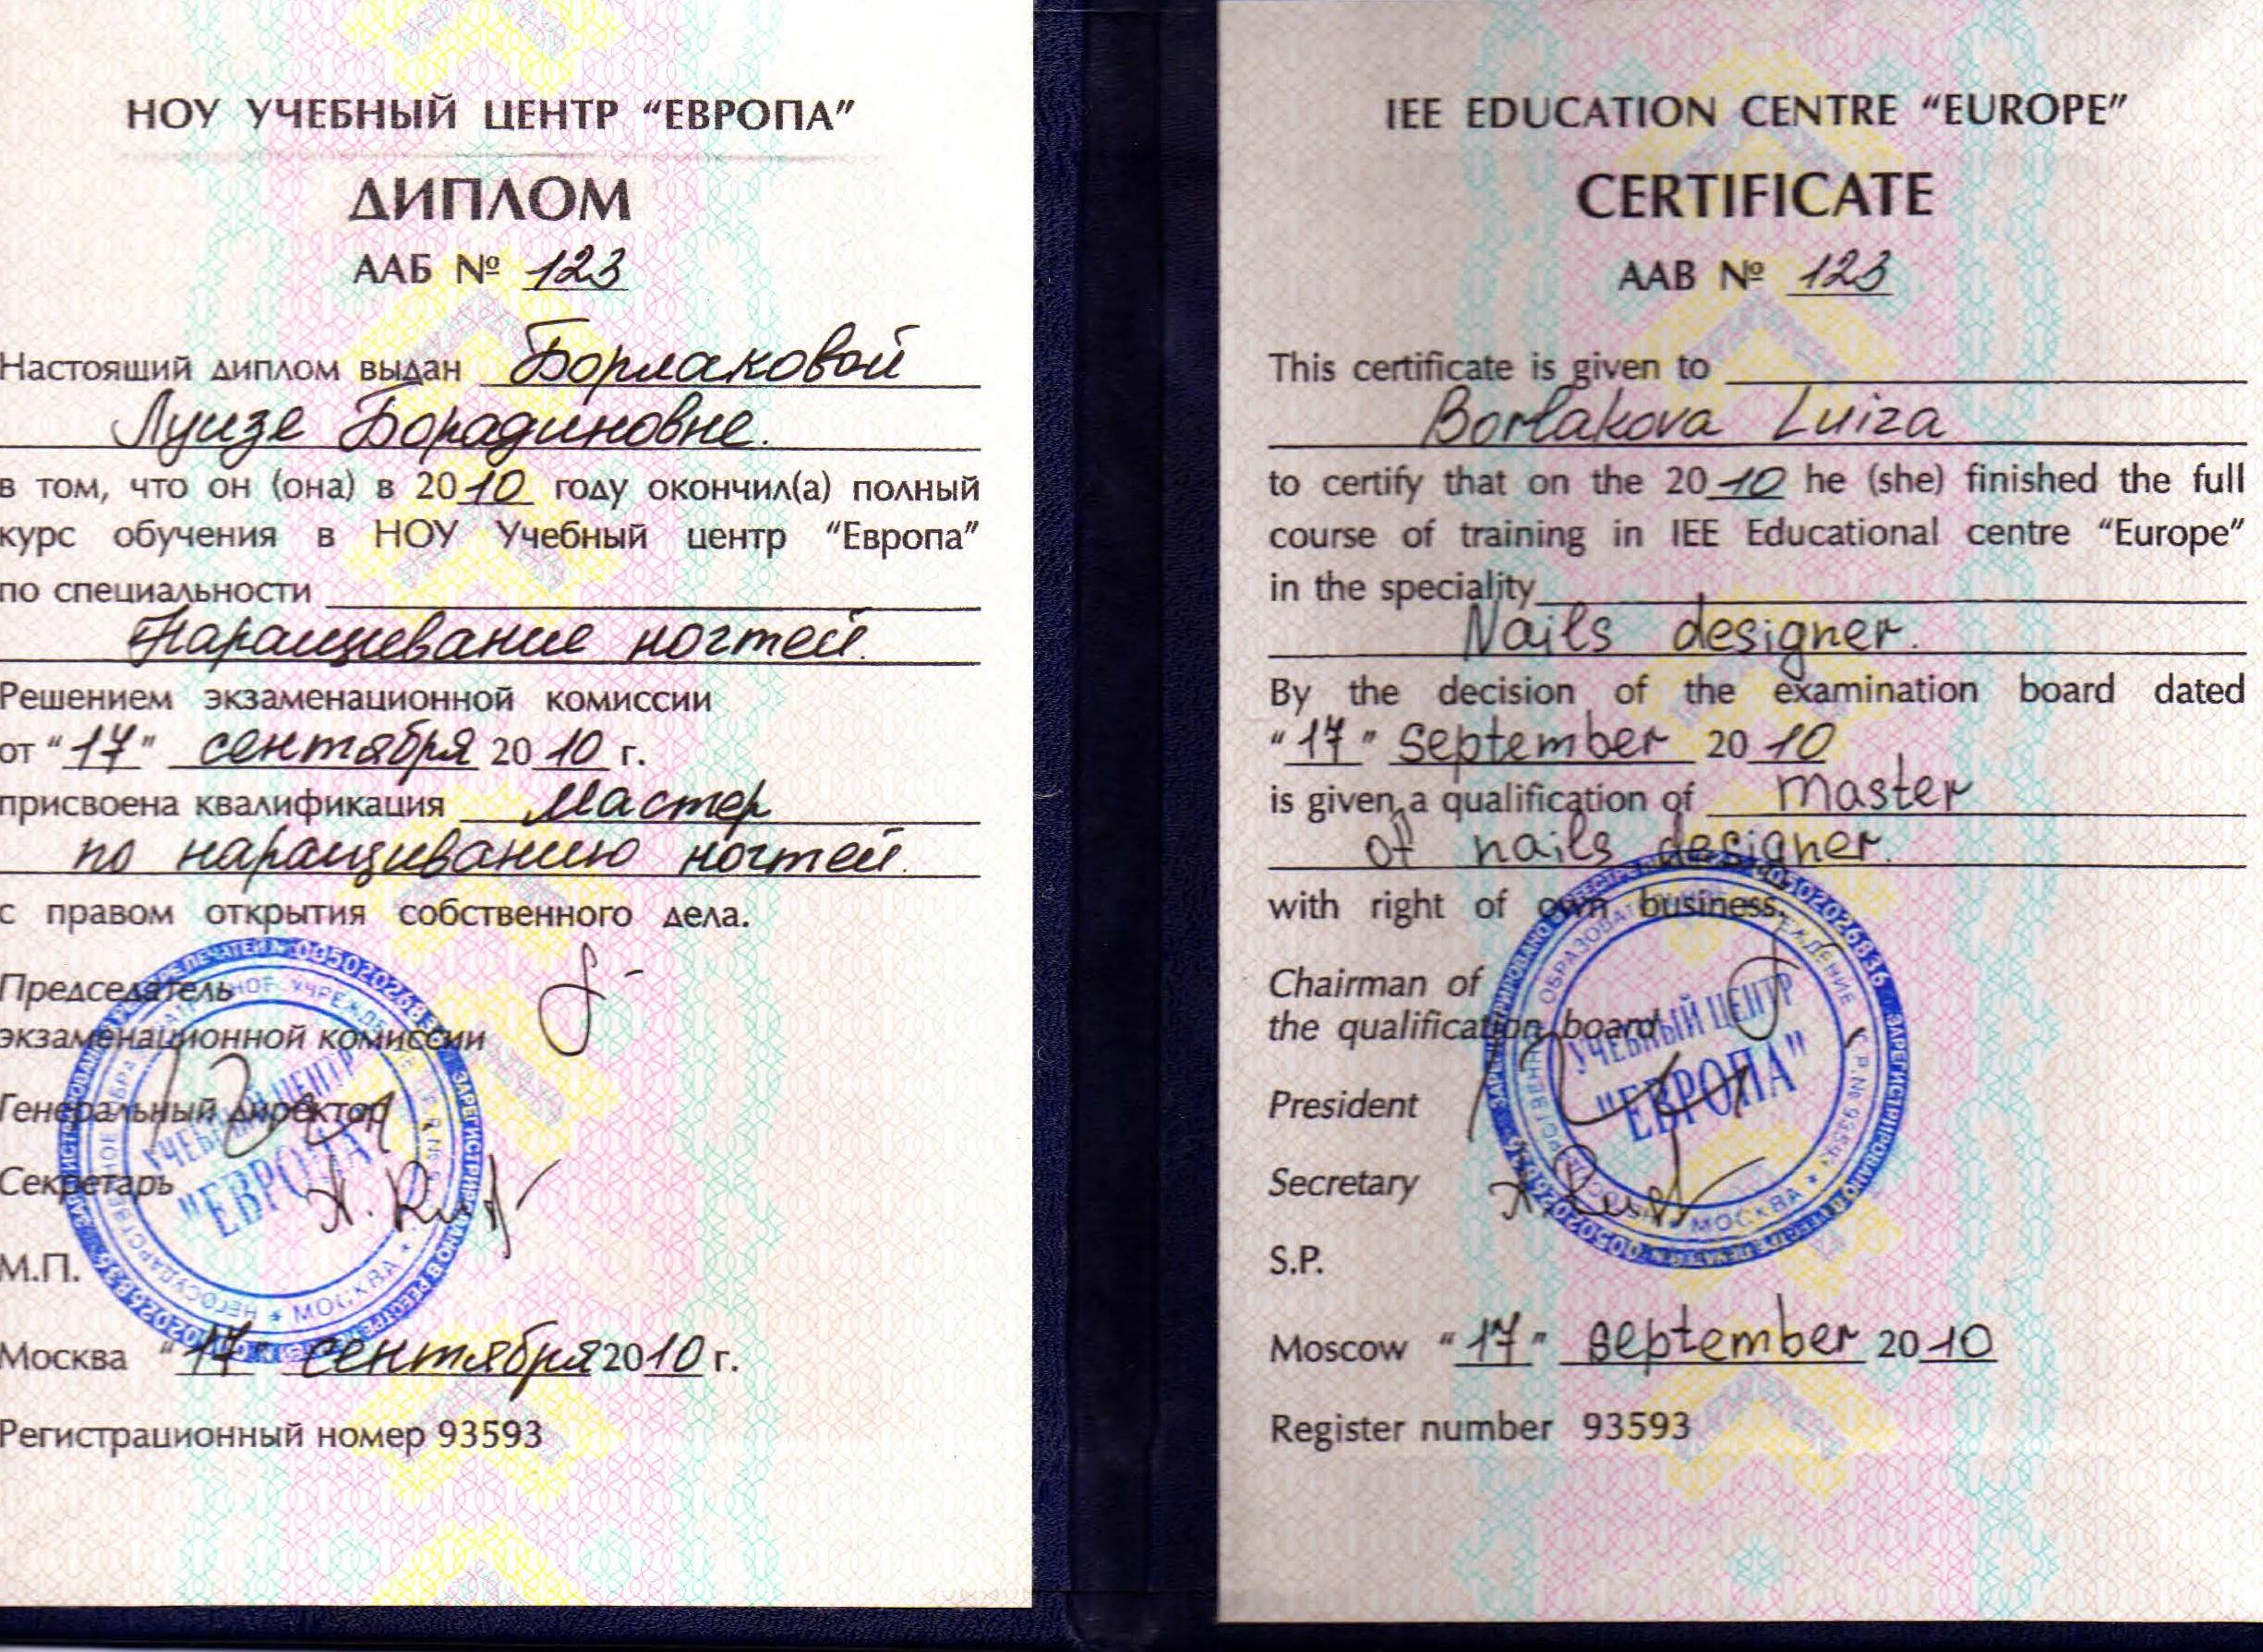 НОУ УЧЕБНЫЙ ЦЕНТР “ЕВРОПА”
ДИПЛОМ
ААБ № 123
Настоящий диплом выдан Борлаковой
Луизе Борадиновне.
в том, что он (она) в 2010 году окончил(а) полный
курс обучения в НОУ Учебный центр “Европа”
по специальности
Наращивание ногтей.
Решением экзаменационной комиссии
от “17” сентября 2010 г.
присвоена квалификация Мастер
по наращиванию ногтей.
с правом открытия собственного дела.
Председатель
экзаменационной комиссии
Генеральный директор
Секретарь
М.П.
УЧЕБНЫЙ ЦЕНТР
"ЕВРОПА"
МОСКВА
Москва “17” сентября 2010 г.
Регистрационный номер 93593
IEE EDUCATION CENTRE “EUROPE”
CERTIFICATE
AAB № 123
This certificate is given to
Borlakova Luiza
to certify that on the 2010 he (she) finished the full
course of training in IEE Educational centre “Europe”
in the speciality
Nails designer.
By the decision of the examination board dated
“17” september 2010
is given a qualification of master
of nails designer.
with right of own business.
Chairman of
the qualification board
President
Secretary
S.P.
УЧЕБНЫЙ ЦЕНТР
"ЕВРОПА"
МОСКВА
Moscow “17” september 2010
Register number 93593